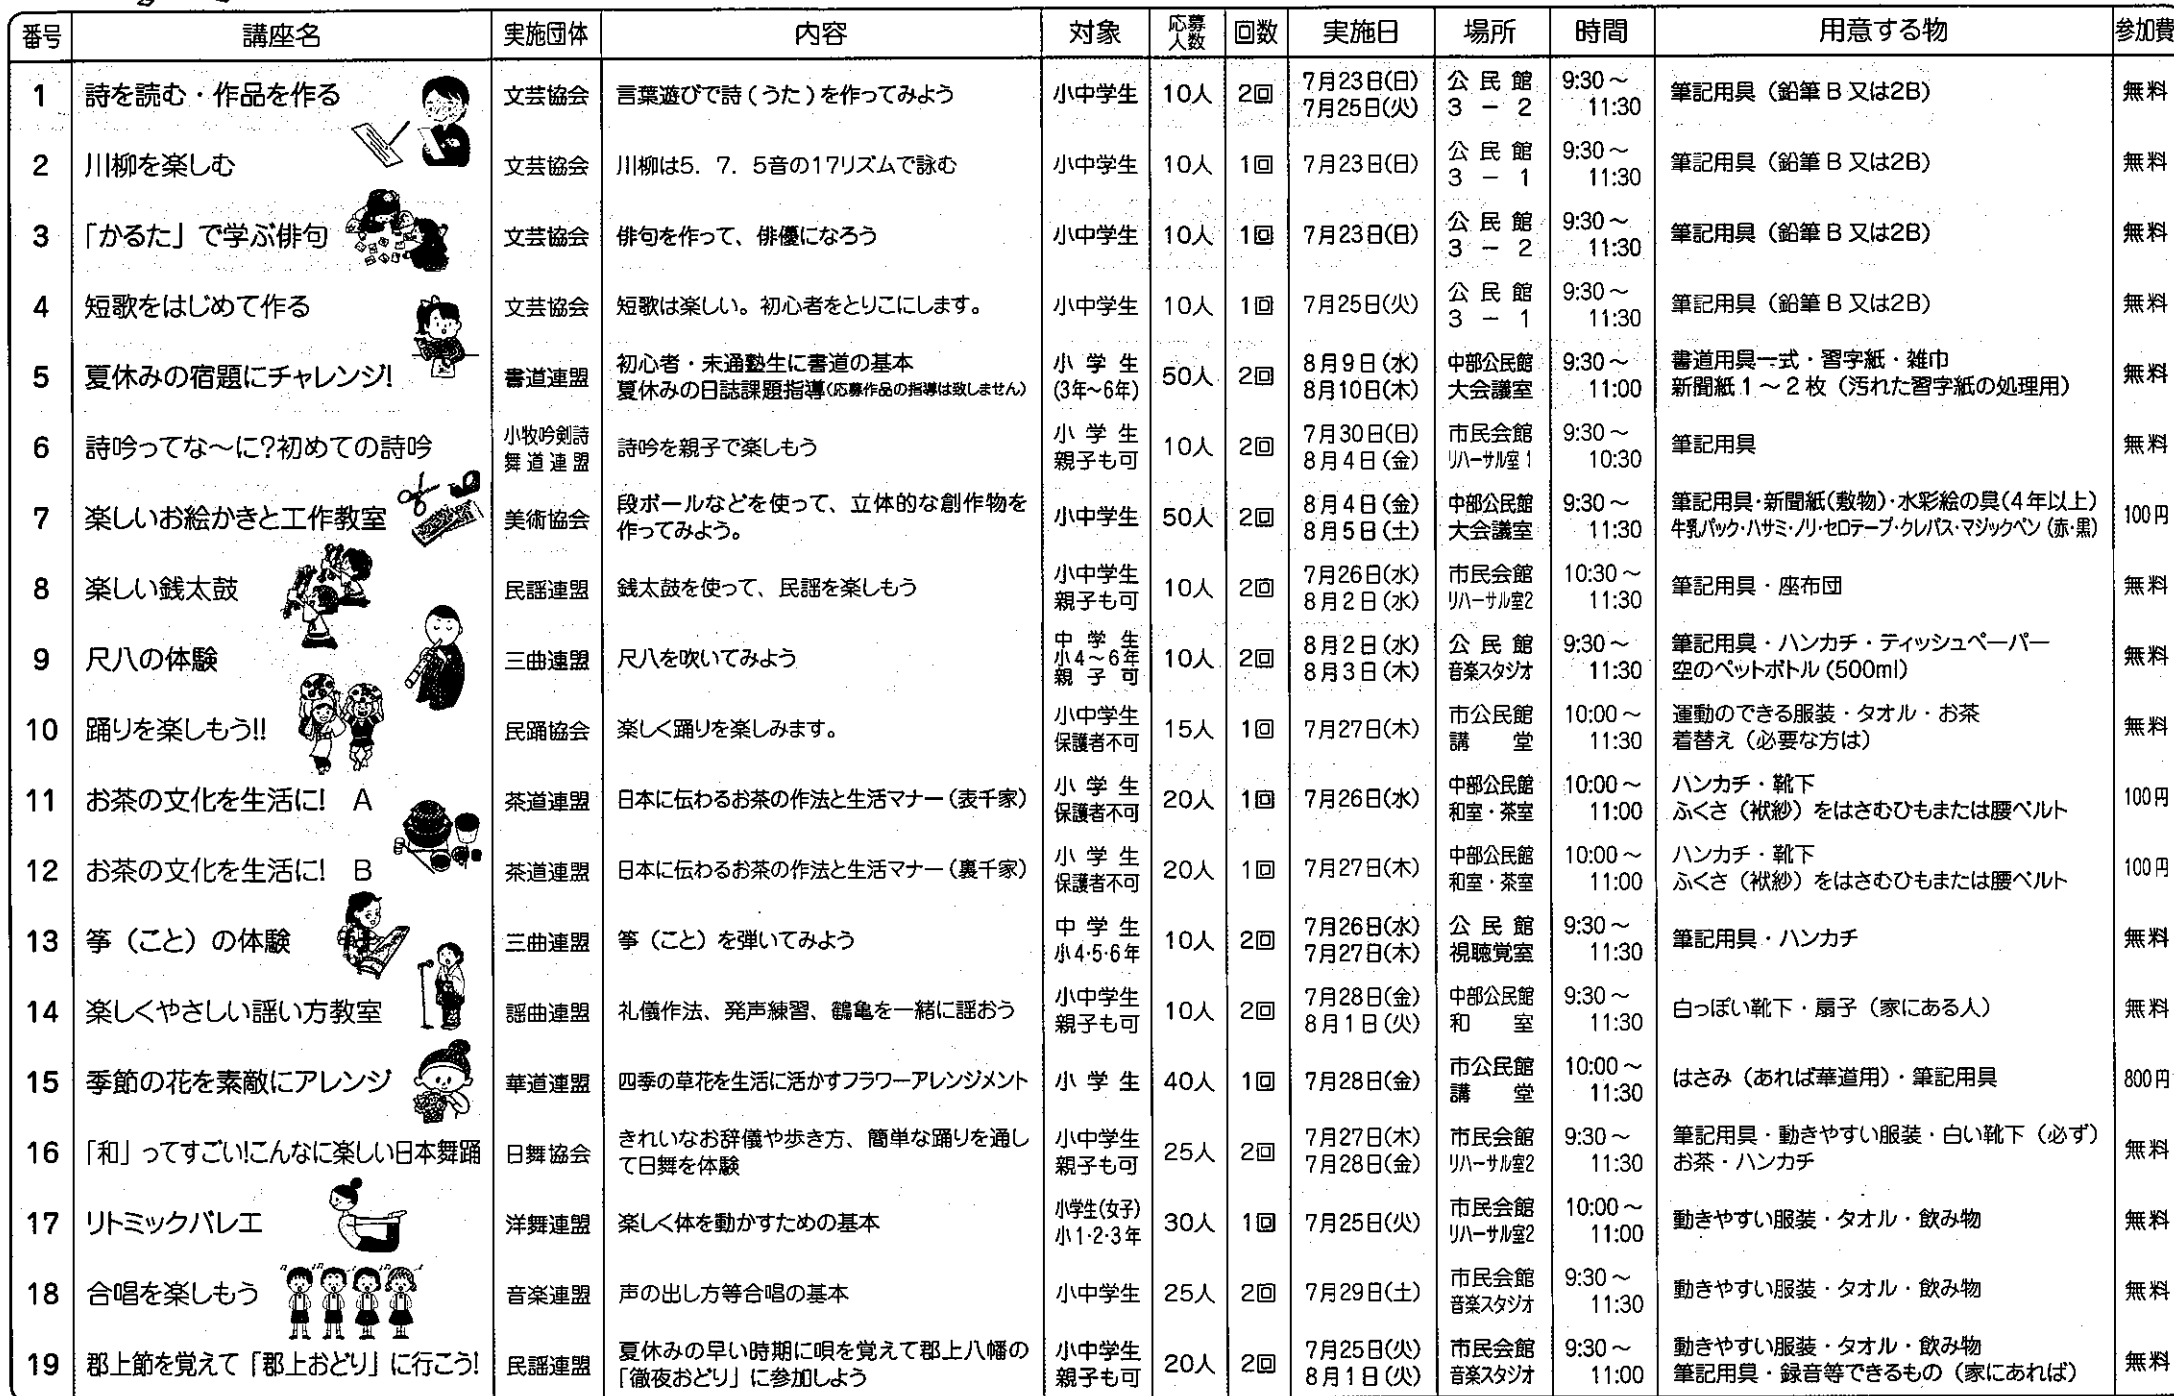 番号 講座名 実施団体 内容 対象 応募人数 回数 実施日 場所 時間 用意する物 参加費
1 詩を読む・作品を作る 文芸協会 言葉遊びで詩（うた）を作ってみよう 小中学生 10人 2回 7月23日(日) 7月25日(火) 公民館 3－2 9:30～11:30 筆記用具（鉛筆B又は2B） 無料
2 川柳を楽しむ 文芸協会 川柳は5．7．5音の17リズムで詠む 小中学生 10人 1回 7月23日(日) 公民館 3－1 9:30～11:30 筆記用具（鉛筆B又は2B） 無料
3 「かるた」で学ぶ俳句 文芸協会 俳句を作って、俳優になろう 小中学生 10人 1回 7月23日(日) 公民館 3－2 9:30～11:30 筆記用具（鉛筆B又は2B） 無料
4 短歌をはじめて作る 文芸協会 短歌は楽しい。初心者をとりこにします。 小中学生 10人 1回 7月25日(火) 公民館 3－1 9:30～11:30 筆記用具（鉛筆B又は2B） 無料
5 夏休みの宿題にチャレンジ! 書道連盟 初心者・未通塾生に書道の基本 夏休みの日誌課題指導(応募作品の指導は致しません) 小学生 (3年～6年) 50人 2回 8月9日(水) 8月10日(木) 中部公民館 大会議室 9:30～11:00 書道用具一式・習字紙・雑巾 新聞紙1～2枚（汚れた習字紙の処理用） 無料
6 詩吟ってな～に?初めての詩吟 小牧吟剣詩舞道連盟 詩吟を親子で楽しもう 小学生 親子も可 10人 2回 7月30日(日) 8月4日(金) 市民会館 リハーサル室1 9:30～10:30 筆記用具 無料
7 楽しいお絵かきと工作教室 美術協会 段ボールなどを使って、立体的な創作物を作ってみよう。 小中学生 50人 2回 8月4日(金) 8月5日(土) 中部公民館 大会議室 9:30～11:30 筆記用具・新聞紙(敷物)・水彩絵の具(4年以上) 牛乳パック・ハサミ・ノリ・セロテープ・クレパス・マジックペン(赤・黒) 100円
8 楽しい銭太鼓 民謡連盟 銭太鼓を使って、民謡を楽しもう 小中学生 親子も可 10人 2回 7月26日(水) 8月2日(水) 市民会館 リハーサル室2 10:30～11:30 筆記用具・座布団 無料
9 尺八の体験 三曲連盟 尺八を吹いてみよう 中学生 小4～6年 親子可 10人 2回 8月2日(水) 8月3日(木) 公民館 音楽スタジオ 9:30～11:30 筆記用具・ハンカチ・ティッシュペーパー 空のペットボトル(500ml) 無料
10 踊りを楽しもう!! 民踊協会 楽しく踊りを楽しみます。 小中学生 保護者不可 15人 1回 7月27日(木) 市公民館 講堂 10:00～11:30 運動のできる服装・タオル・お茶 着替え（必要な方は） 無料
11 お茶の文化を生活に! A 茶道連盟 日本に伝わるお茶の作法と生活マナー（表千家） 小学生 保護者不可 20人 1回 7月26日(水) 中部公民館 和室・茶室 10:00～11:00 ハンカチ・靴下 ふくさ（袱紗）をはさむひもまたは腰ベルト 100円
12 お茶の文化を生活に! B 茶道連盟 日本に伝わるお茶の作法と生活マナー（裏千家） 小学生 保護者不可 20人 1回 7月27日(木) 中部公民館 和室・茶室 10:00～11:00 ハンカチ・靴下 ふくさ（袱紗）をはさむひもまたは腰ベルト 100円
13 箏（こと）の体験 三曲連盟 箏（こと）を弾いてみよう 中学生 小4・5・6年 10人 2回 7月26日(水) 7月27日(木) 公民館 視聴覚室 9:30～11:30 筆記用具・ハンカチ 無料
14 楽しくやさしい謡い方教室 謡曲連盟 礼儀作法、発声練習、鶴亀を一緒に謡おう 小中学生 親子も可 10人 2回 7月28日(金) 8月1日(火) 中部公民館 和室 9:30～11:30 白っぽい靴下・扇子（家にある人） 無料
15 季節の花を素敵にアレンジ 華道連盟 四季の草花を生活に活かすフラワーアレンジメント 小学生 40人 1回 7月28日(金) 市公民館 講堂 10:00～11:30 はさみ（あれば華道用）・筆記用具 800円
16 「和」ってすごい!こんなに楽しい日本舞踊 日舞協会 きれいなお辞儀や歩き方、簡単な踊りを通して日舞を体験 小中学生 親子も可 25人 2回 7月27日(木) 7月28日(金) 市民会館 リハーサル室2 9:30～11:30 筆記用具・動きやすい服装・白い靴下（必ず） お茶・ハンカチ 無料
17 リトミックバレエ 洋舞連盟 楽しく体を動かすための基本 小学生(女子) 小1・2・3年 30人 1回 7月25日(火) 市民会館 リハーサル室2 10:00～11:00 動きやすい服装・タオル・飲み物 無料
18 合唱を楽しもう 音楽連盟 声の出し方等合唱の基本 小中学生 25人 2回 7月29日(土) 市民会館 音楽スタジオ 9:30～11:30 動きやすい服装・タオル・飲み物 無料
19 郡上節を覚えて「郡上おどり」に行こう! 民謡連盟 夏休みの早い時期に唄を覚えて郡上八幡の「徹夜おどり」に参加しよう 小中学生 親子も可 20人 2回 7月25日(火) 8月1日(火) 市民会館 音楽スタジオ 9:30～11:00 動きやすい服装・タオル・飲み物 筆記用具・録音等できるもの（家にあれば） 無料